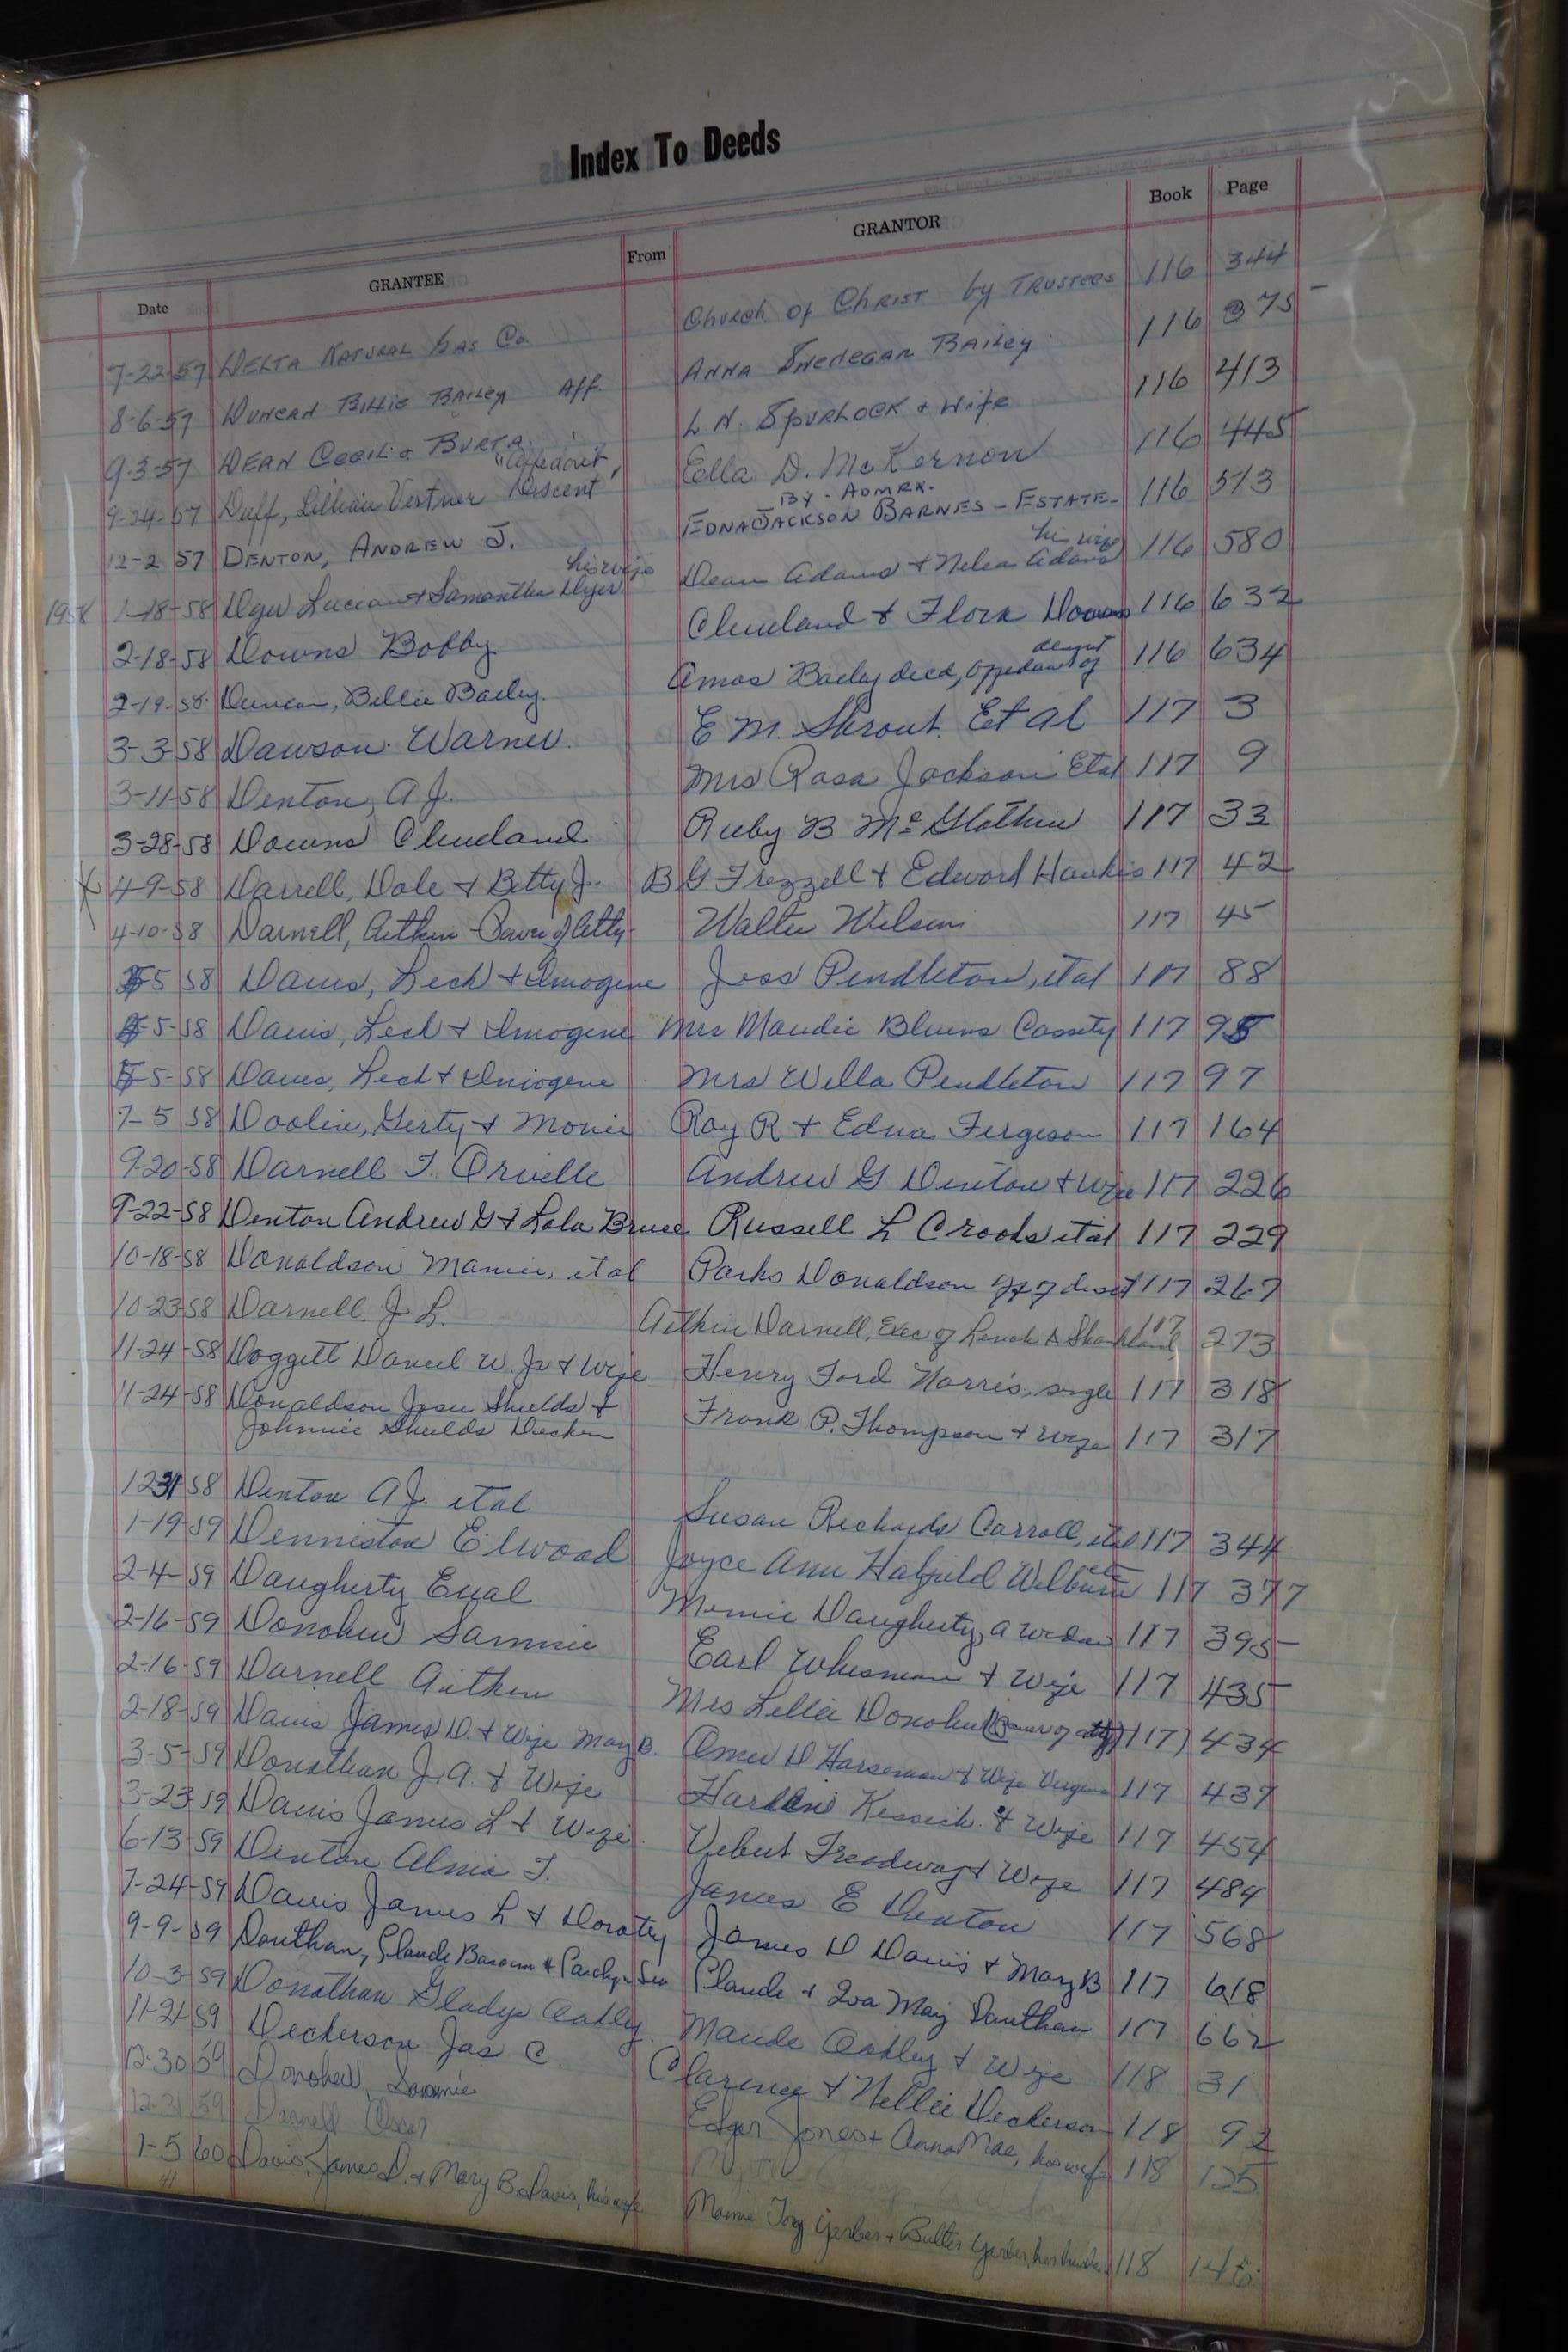 Index To Deeds
Date GRANTEE From GRANTOR Book Page
7-22-57 DELTA NATURAL GAS Co Church of Christ by Trustees 116 344
8-6-57 DUNCAN Billie Bailey Aff. ANNA Snedegar Bailey 116 375
9-3-57 DEAN Cecil & BURTA L. N. SPURLOCK & Wife 116 413
9-24-57 Duff, Lillian Vertner "Affidavit Descent" Ella D. McKernon 116 445
12-2 57 DENTON, ANDREW J. EDNA JACKSON BARNES - ESTATE - BY - ADMRX. 116 513
1958 1-18-58 Dyer Lucian & Samantha Dyer his wife Dean Adams & Nelea Adams his wife 116 580
2-18-58 Downs Bobby Cleveland & Flora Downs 116 632
2-19-58 Duncan, Billie Bailey. Amos Bailey decd, affidavit of descent 116 634
3-3-58 Dawson Warner. E M. Shrout. Et Al 117 3
3-11-58 Denton, A J. Mrs Rosa Jackson Etal 117 9
3-28-58 Downs Cleveland Ruby B McGlothin 117 33
X 4-9-58 Darrell, Dale & Betty J. B G Frezzell & Edward Hawkis 117 42
4-10-58 Darnell, Aitken - Power of Atty Walter Wilson 117 45
5-5 58 Davis, Leck & Imogene Jess Pendleton, etal 117 88
5-5-58 Davis, Leck & Imogene Mrs Maudie Blevins Cassity 117 95
5-5-58 Davis, Leck & Imogene Mrs Willa Pendleton 117 97
7-5 58 Doolin, Girty & Monie Roy R & Edna Fergeson 117 164
9-20-58 Darnell T. Orville Andrew G Denton & Wife 117 226
9-22-58 Denton Andrew G & Lola Bruce Russell L Crooks etal 117 229
10-18-58 Donaldson Mamie, etal Parks Donaldson Aff of desct 117 267
10-23-58 Darnell J L. Aitkin Darnell, Exec of Lenah D Shankland, 117 273
11-24-58 Doggett Daniel W. Jr & Wife Henry Ford Norris, single 117 318
11-24-58 Donaldson Josie Shields & Frank P. Thompson & Wife 117 317
Johnnie Shields Decker
12 31 58 Denton A J. etal Susan Richards Carroll, etal 117 344
1-19-59 Denniston Elwood Joyce Ann Hatfield Wilburn etc 117 377
2-4-59 Daugherty Eual Mimie Daugherty, a widow 117 395
2-16-59 Donohew Sammie Earl Whisman & Wife 117 435
2-16-59 Darnell Aitken Mrs Lillie Donohew (Power of atty) 117 434
2-18-59 Davis James D. & Wife Mary B. Omer D Horseman & Wife Virginia 117 437
3-5-59 Donathan J. A. & Wife Harlan Kissick & Wife 117 454
3-23-59 Davis James L & Wife Delbert Treadway & Wife 117 484
6-13-59 Denton Alma T. James E Denton 117 568
7-24-59 Davis James L & Dorothy James D Davis & Mary B 117 618
9-9-59 Douthan, Claude & Claude & Iva May Douthan 117 662
10-3-59 Donathan Gladys Oakley Maude Oakley & Wife 118 31
11-21-59 Deckerson Jas C. Clarence & Nellie Deckerson 118 92
12-30 59 Donohew, Sammie Edgar Jones & Anna Mae, his wife 118 125
12-31 59 Darnell Oscar
1-5 60 Davis, James D. & Mary B. Davis, his wife Mamie Garber & Butler Garber, her husb. 118 146